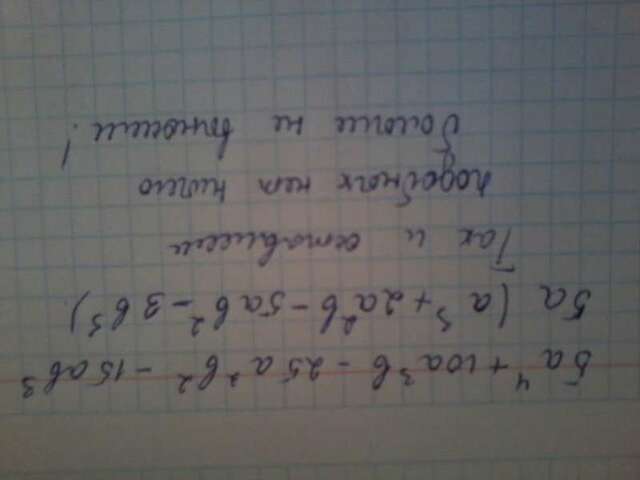 5a⁴ + 10a³b - 25a²b² - 15ab³
5a (a³ + 2a²b - 5ab² - 3b³)
Так и оставляем
подобных нет ничего
больше не выносим!